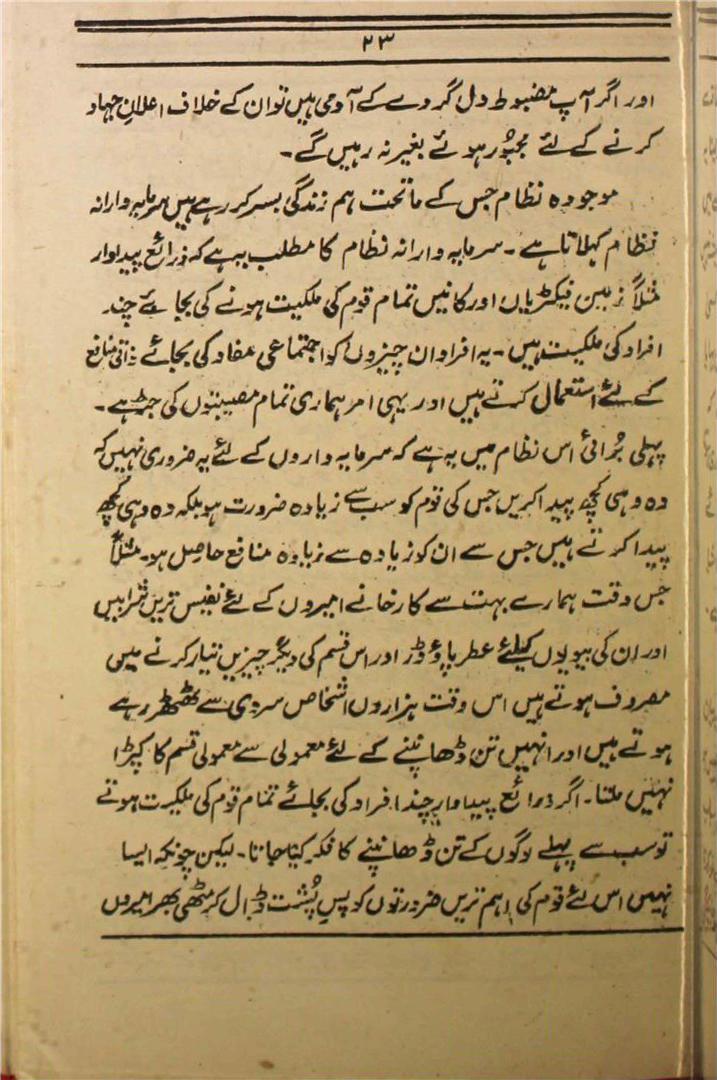 ۲۳
اور اگر آپ مضبوط دل گردے کے آدمی ہیں تو ان کے خلاف اعلانِ جہاد
کرنے کے لئے مجبُور ہوئے بغیر نہ رہیں گے۔
موجودہ نظام جس کے ماتحت ہم زندگی بسر کر رہے ہیں سرمایہ دارانہ
نظام کہلاتا ہے۔ سرمایہ دارانہ نظام کا مطلب یہ ہے کہ ذرائع پیداوار
مثلاً زمین فیکٹریاں اور کانیں تمام قوم کی ملکیت ہونے کی بجائے چند
افراد کی ملکیت ہیں۔ یہ افراد ان چیزوں کو اجتماعی مفاد کی بجائے ذاتی منافع
کے لئے استعمال کرتے ہیں اور یہی امر ہماری تمام مصیبتوں کی جڑ ہے۔
پہلی بُرائی اس نظام میں یہ ہے کہ سرمایہ داروں کے لئے یہ ضروری نہیں کہ
وہ وہی کچھ پیدا کریں جس کی قوم کو سب سے زیادہ ضرورت ہو بلکہ وہ وہی کچھ
پیدا کرتے ہیں جس سے ان کو زیادہ سے زیادہ منافع حاصل ہو۔ مثلاً
جس وقت ہمارے بہت سے کارخانے امیروں کے لئے نفیس ترین شرابیں
اور ان کی بیویوں کیلئے عطر پاؤڈر اور اس قسم کی دیگر چیزیں تیار کرنے میں
مصروف ہوتے ہیں اس وقت ہزاروں اشخاص سردی سے ٹھٹھر رہے
ہوتے ہیں اور انہیں تن ڈھانپنے کے لئے معمولی سے معمولی قسم کا کپڑا
نہیں ملتا۔ اگر ذرائع پیداوار چند افراد کی بجائے تمام قوم کی ملکیت ہوتے
تو سب سے پہلے لوگوں کے تن ڈھانپنے کا فکر کیا جاتا۔ لیکن چونکہ ایسا
نہیں اس لئے قوم کی اہم ترین ضرورتوں کو پسِ پُشت ڈال کر مٹھی بھر امیروں